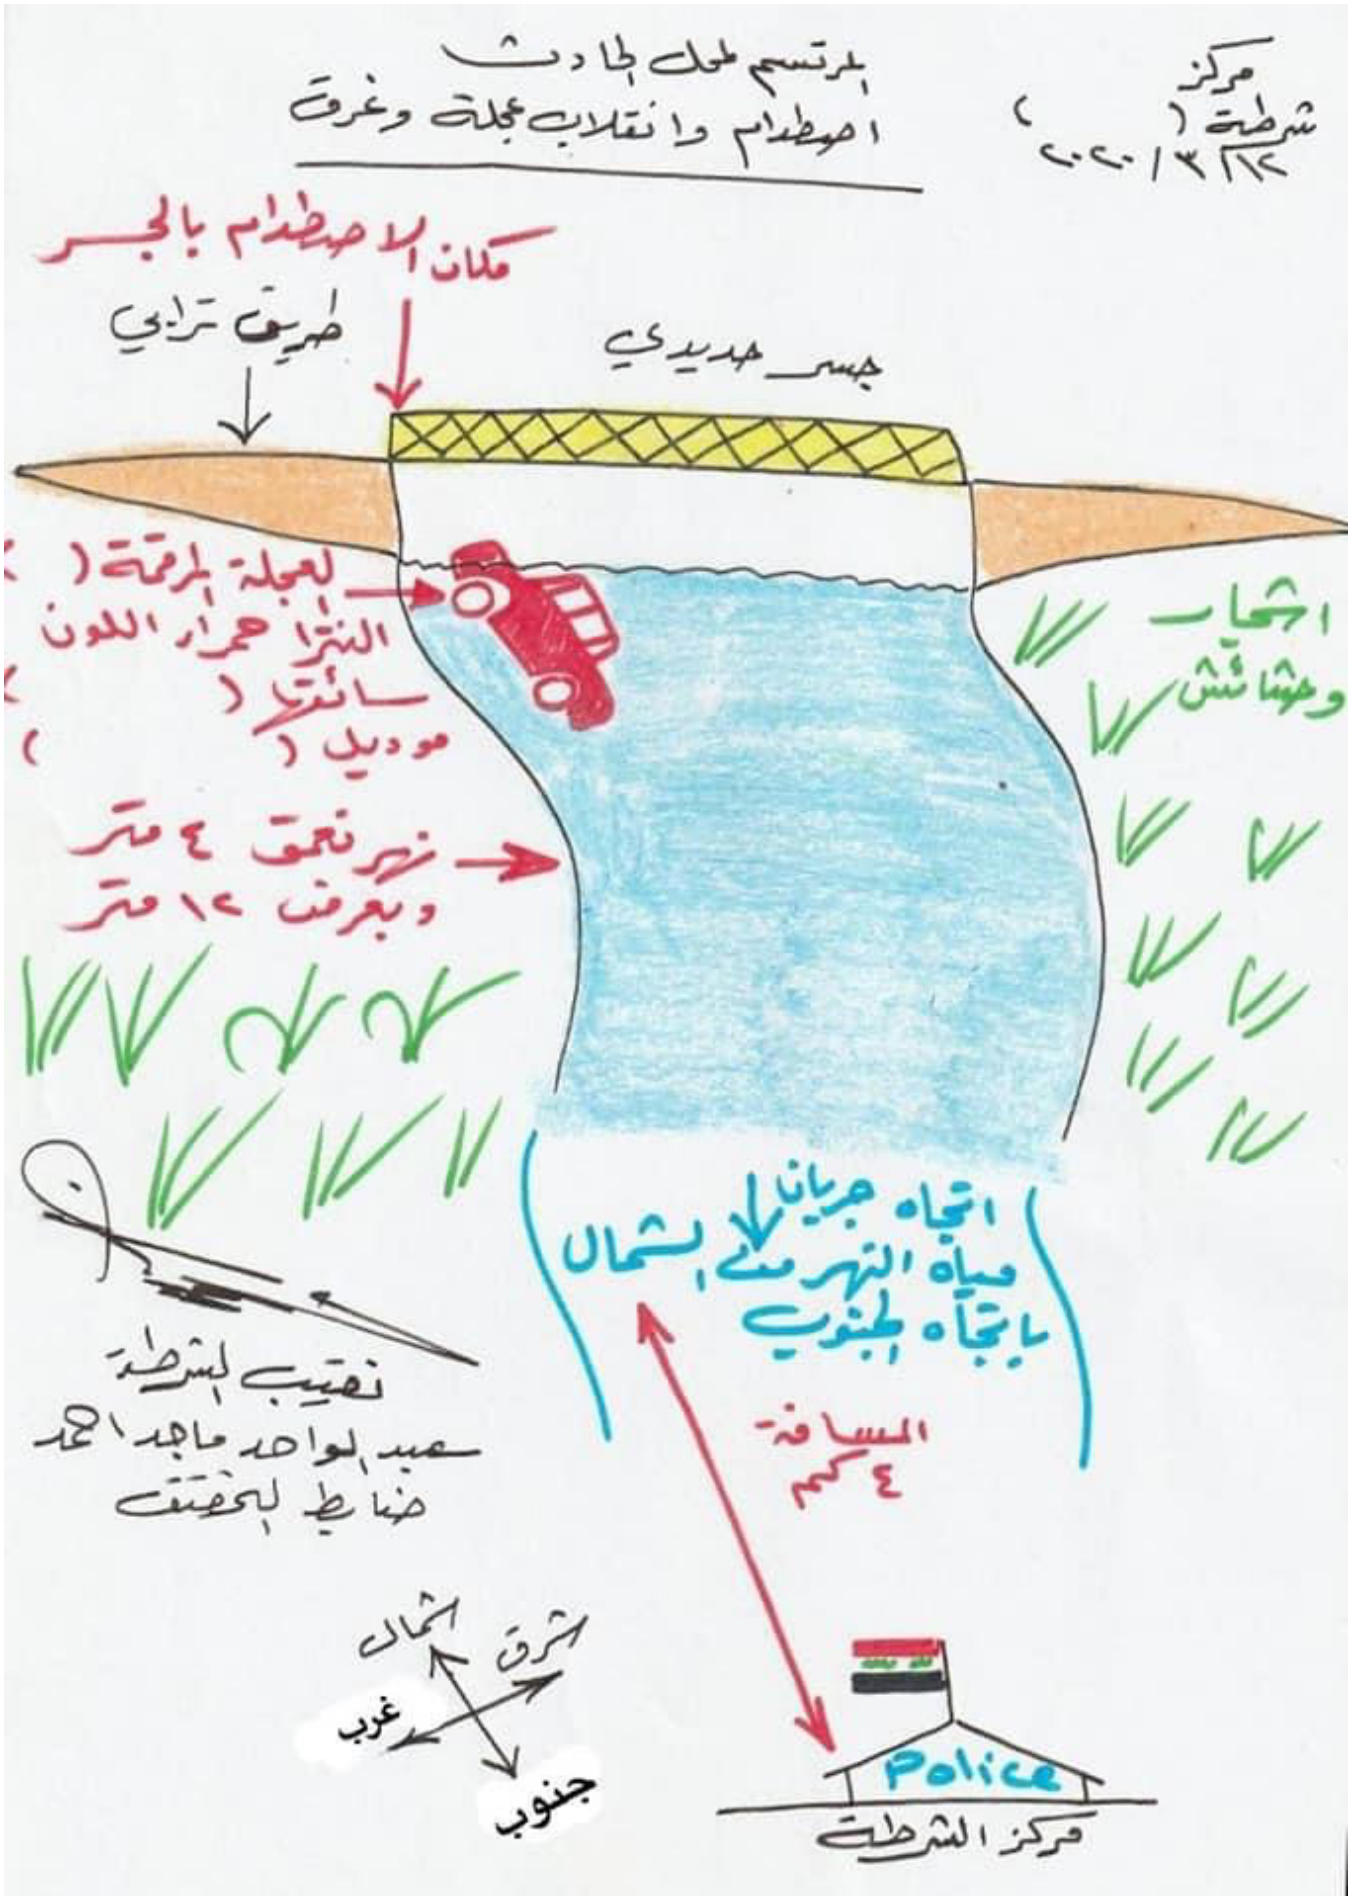 مركز
شرطة (       )
١٢ / ٣ / ٢٠٢٠
المرتسم لمحل الحادث
اصطدام وانقلاب عجلة وغرق
مكان الاصطدام بالجسر
طريق ترابي
جسر حديدي
العجلة المرقمة (       )
النترا حمراء اللون
سائقها (       )
موديل (       )
اشجار
وحشائش
نهر بعمق ٤ متر
وبعرض ١٢ متر
اتجاه جريان
مياه النهر من الشمال
باتجاه الجنوب
نقيب الشرطة
عبد الواحد ماجد احمد
ضابط التحقيق
المسافة
٤ كم
شمال
شرق
غرب
جنوب
Police
مركز الشرطة